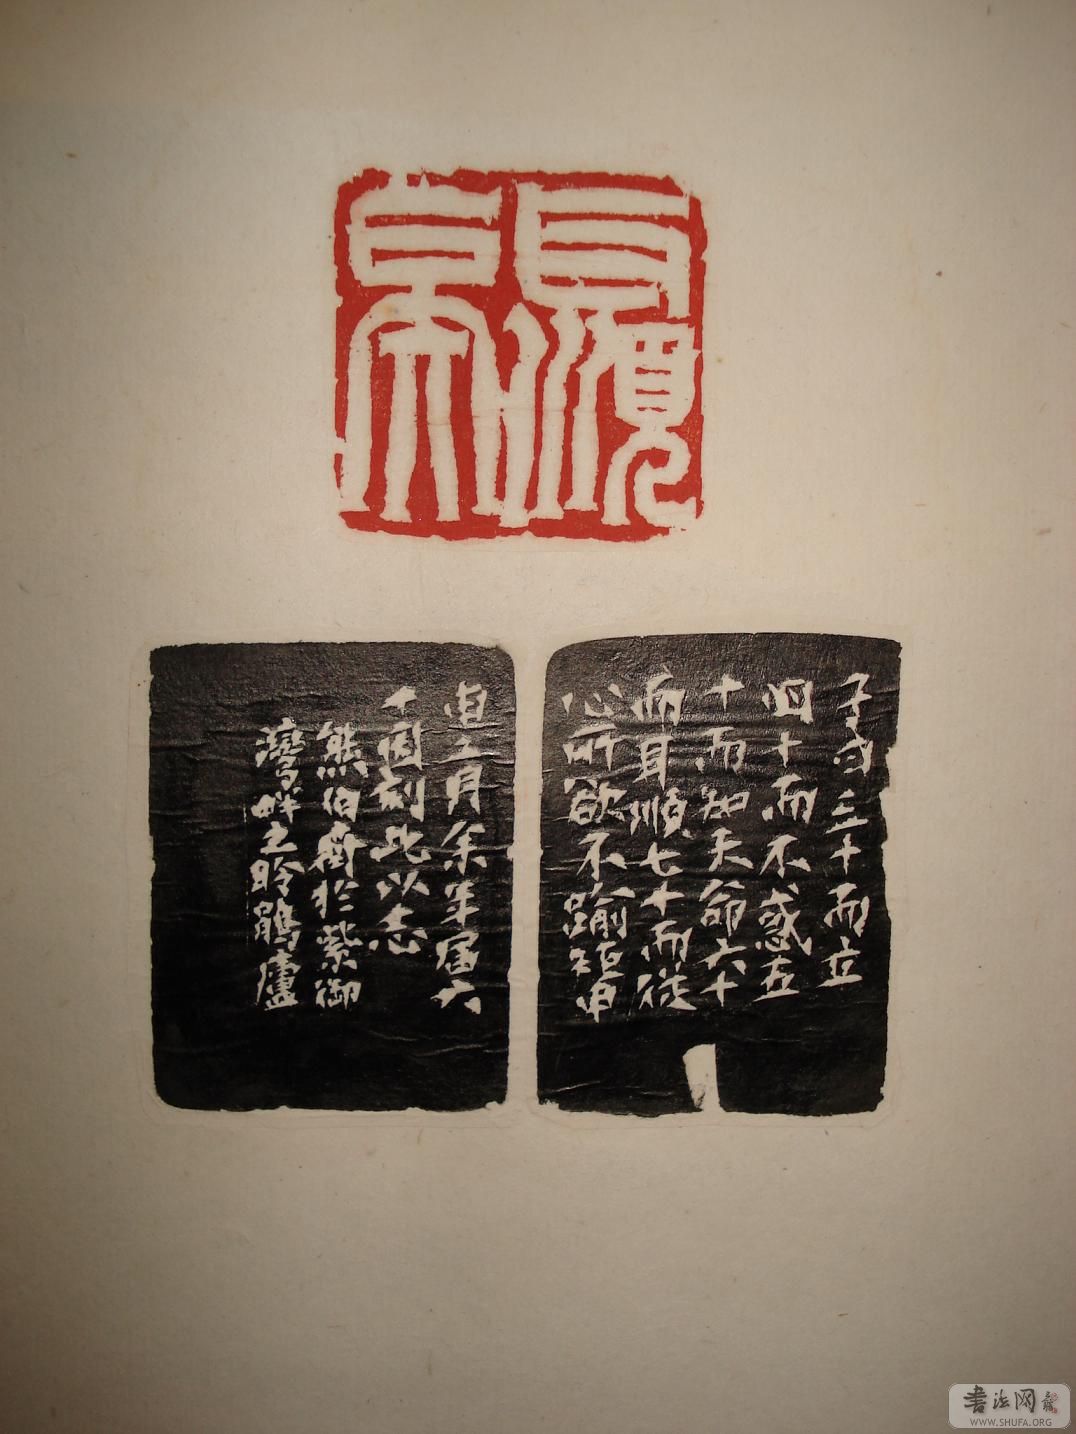 耳順
子曰三十而立
四十而不惑五
十而知天命六十
而耳順七十而從
心所欲不踰矩
五月余年屆六
十因刻此以志
熊伯齊於紫御
灣畔之聆鵑廬
書法网
WWW.SHUFA.ORG